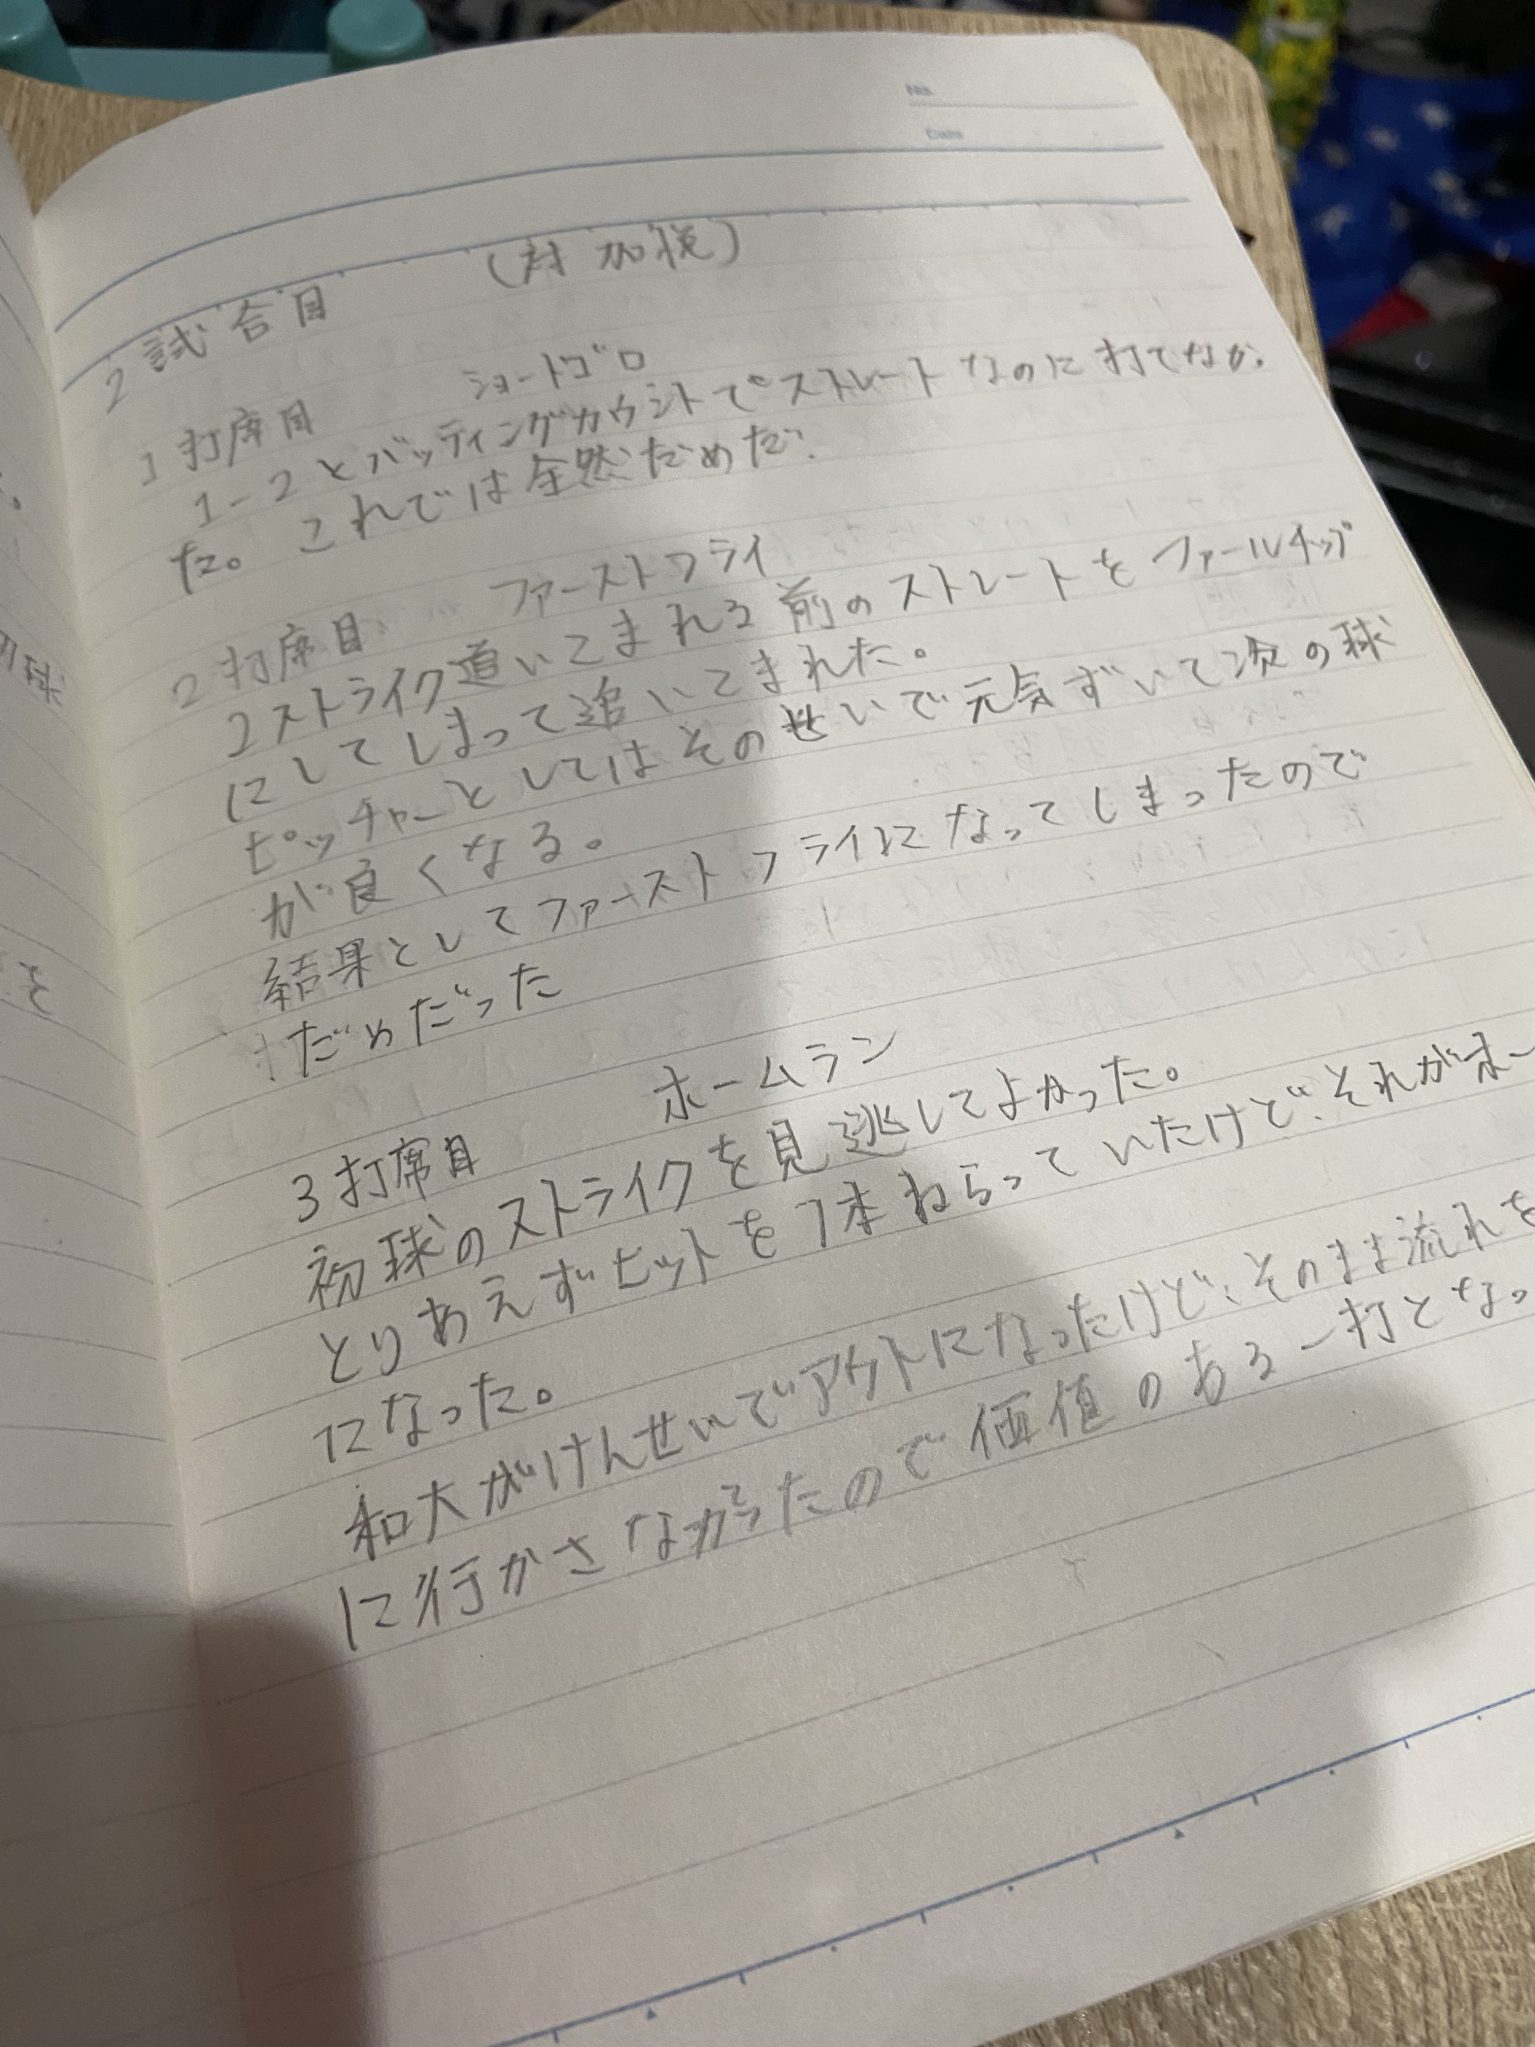 No.
Date
2試合目 (対 加悦)
1打席目 ショートゴロ
1-2とバッティングカウントでストレートなのに打てなか
た。これでは全然だめだ。
2打席目 ファーストフライ
2ストライク追いこまれる前のストレートをファールチップ
にしてしまって追いこまれた。
ピッチャーとしてはそのせいで元気ずいて次の球
が良くなる。
結果としてファーストフライになってしまったので
だめだった
3打席目 ホームラン
初球のストライクを見逃してよかった。
とりあえずヒットを1本ねらっていたけど、それがホー
になった。
和大がけんせいでアウトになったけど、そのまま流れを
に行かさなかったので価値のある一打となっ
球
を